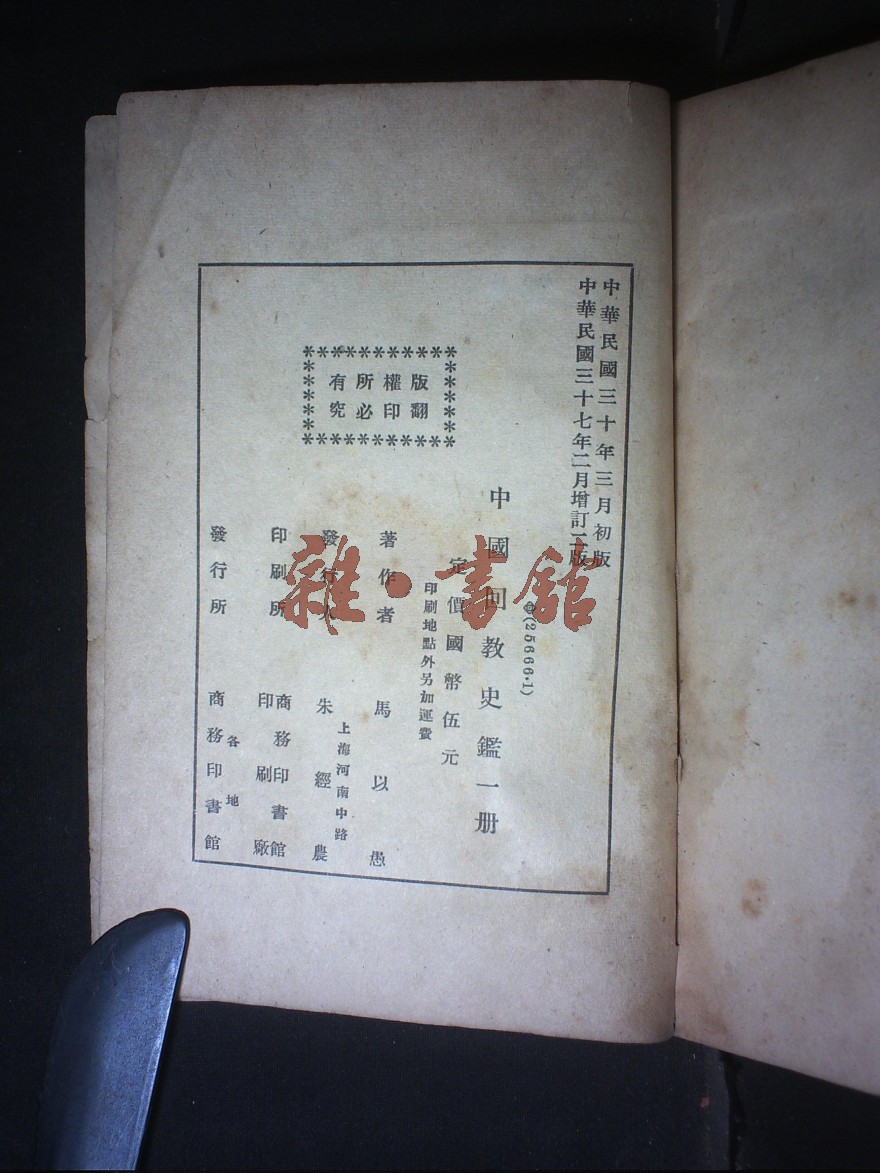 中華民國三十年三月初版
中華民國三十七年二月增訂二版
(25666·1)
中國回教史鑑一册
定價國幣伍元
印刷地點外另加運費
版權所有
翻印必究
著作者 馬以愚
上海河南中路
發行人 朱經農
印刷所 商務印書館印刷廠
各地
發行所 商務印書館
雜·書館